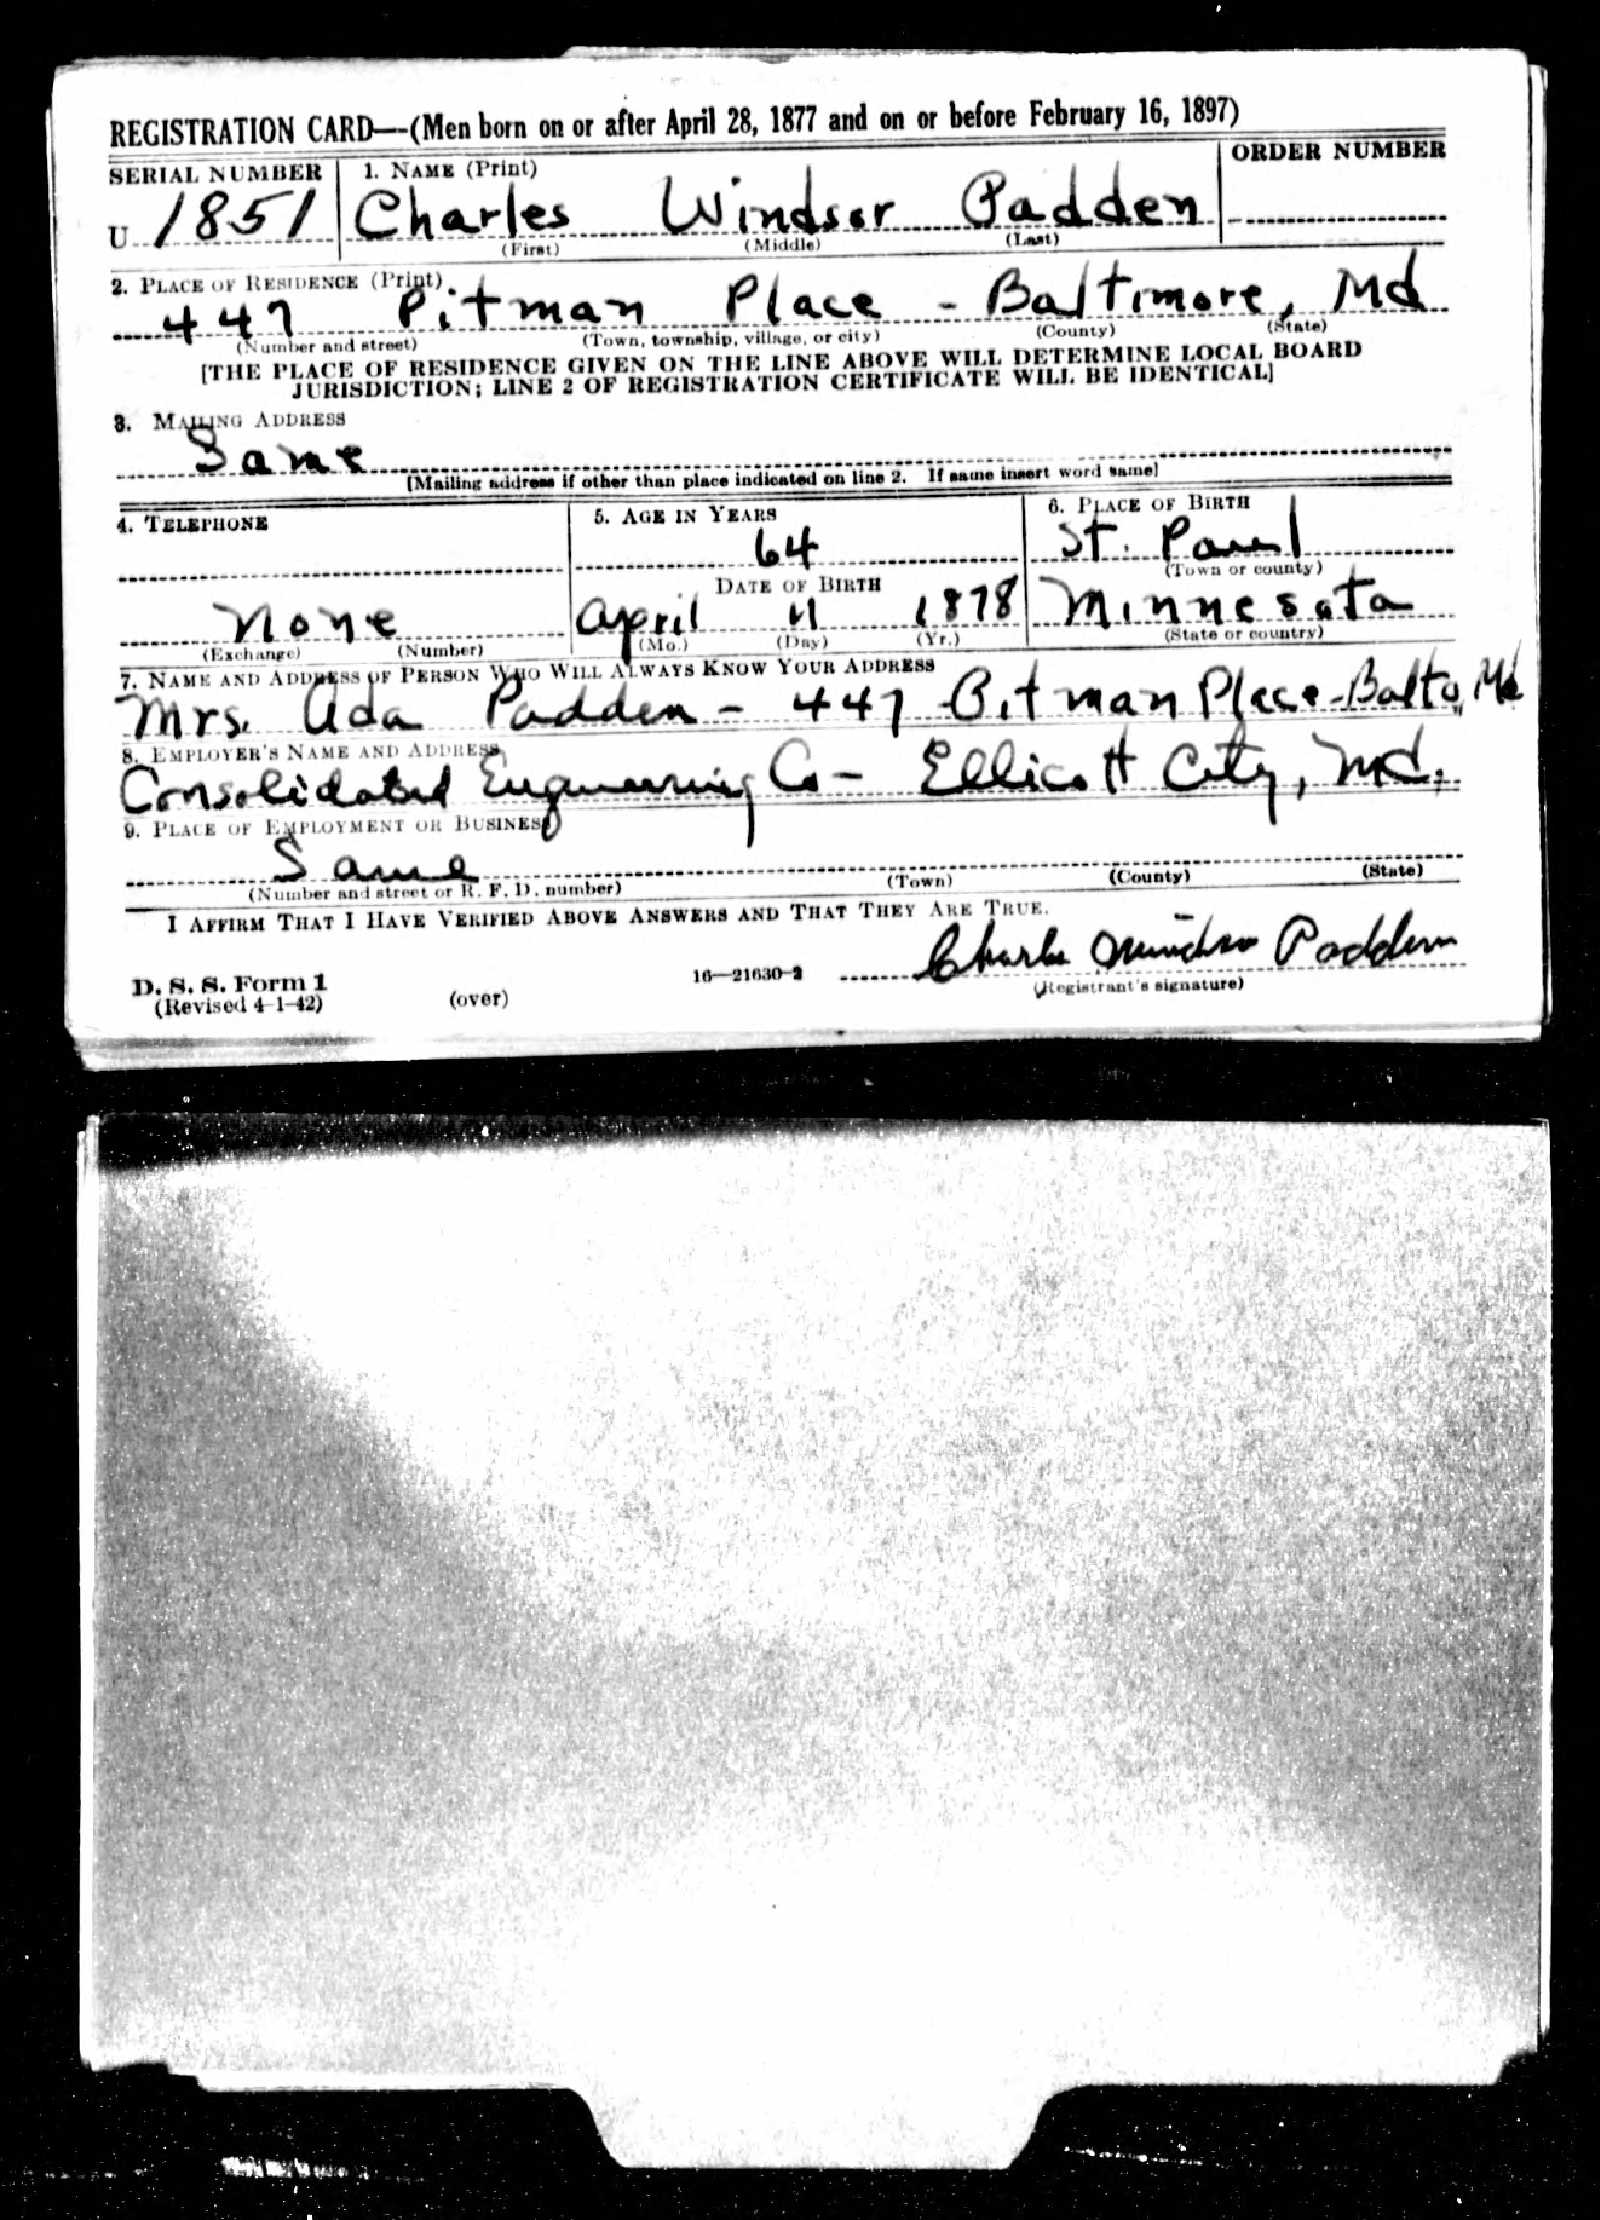 REGISTRATION CARD—(Men born on or after April 28, 1877 and on or before February 16, 1897)
SERIAL NUMBER 1. NAME (Print) ORDER NUMBER
U 1851 Charles Windsor Padden
(First) (Middle) (Last)
2. PLACE OF RESIDENCE (Print)
447 Pitman Place - Baltimore, Md
(Number and street) (Town, township, village, or city) (County) (State)
[THE PLACE OF RESIDENCE GIVEN ON THE LINE ABOVE WILL DETERMINE LOCAL BOARD
JURISDICTION; LINE 2 OF REGISTRATION CERTIFICATE WILL BE IDENTICAL]
3. MAILING ADDRESS
Same
[Mailing address if other than place indicated on line 2. If same insert word same]
4. TELEPHONE 5. AGE IN YEARS 6. PLACE OF BIRTH
64 St. Paul
DATE OF BIRTH (Town or county)
None April 11 1878 Minnesota
(Exchange) (Number) (Mo.) (Day) (Yr.) (State or country)
7. NAME AND ADDRESS OF PERSON WHO WILL ALWAYS KNOW YOUR ADDRESS
Mrs. Ada Padden - 447 Pitman Place - Balto, Md
8. EMPLOYER'S NAME AND ADDRESS
Consolidated Engineering Co - Ellicott City, Md.
9. PLACE OF EMPLOYMENT OR BUSINESS
Same
(Number and street or R. F. D. number) (Town) (County) (State)
I AFFIRM THAT I HAVE VERIFIED ABOVE ANSWERS AND THAT THEY ARE TRUE.
Charles Windsor Padden
D. S. S. Form 1 16—21630-2 (Registrant's signature)
(Revised 4-1-42) (over)